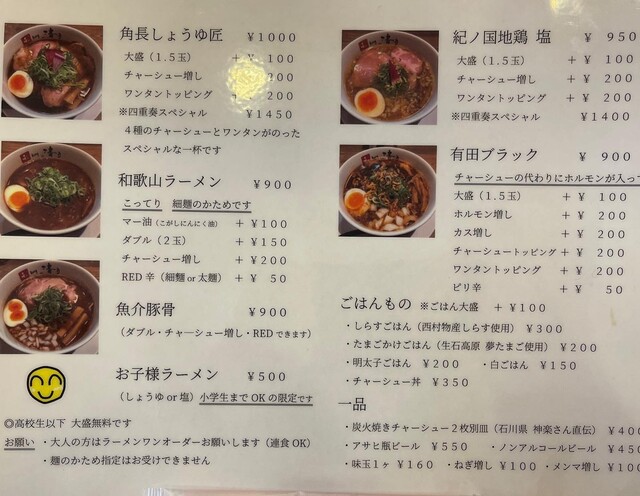 角長しょうゆ匠 ￥1000
大盛（1.5玉） ＋￥ 100
チャーシュー増し ＋￥ 200
ワンタントッピング ＋￥ 200
※四重奏スペシャル ￥1450
4種のチャーシューとワンタンがのった
スペシャルな一杯です
和歌山ラーメン ￥900
こってり 細麺のかためです
マー油（こがしにんにく油） ＋￥100
ダブル（2玉） ＋￥150
チャーシュー増し ＋￥200
RED 辛（細麺 or 太麺） ＋￥ 50
魚介豚骨 ￥900
（ダブル・チャーシュー増し・REDできます）
お子様ラーメン ￥500
（しょうゆ or 塩）小学生までOKの限定です
◎高校生以下 大盛無料です
お願い ・大人の方はラーメンワンオーダーお願いします（連食OK）
・麺のかため指定はお受けできません
紀ノ国地鶏 塩 ￥ 950
大盛（1.5玉） ＋￥ 100
チャーシュー増し ＋￥ 200
ワンタントッピング ＋￥ 200
※四重奏スペシャル ￥1400
有田ブラック ￥ 900
チャーシューの代わりにホルモンが入って
大盛（1.5玉） ＋￥ 100
ホルモン増し ＋￥ 200
カス増し ＋￥ 200
チャーシュートッピング ＋￥ 200
ワンタントッピング ＋￥ 200
ピリ辛 ＋￥ 50
ごはんもの ※ごはん大盛 ＋￥100
・しらすごはん（西村物産しらす使用） ￥300
・たまごかけごはん（生石高原 夢たまご使用）￥200
・明太子ごはん ￥200 ・白ごはん ￥150
・チャーシュー丼 ￥350
一品
・炭火焼きチャーシュー2枚別皿（石川県 神楽さん直伝） ￥400
・アサヒ瓶ビール ￥550 ・ノンアルコールビール ￥450
・味玉1ヶ ￥160 ・ねぎ増し ￥100 ・メンマ増し ￥100